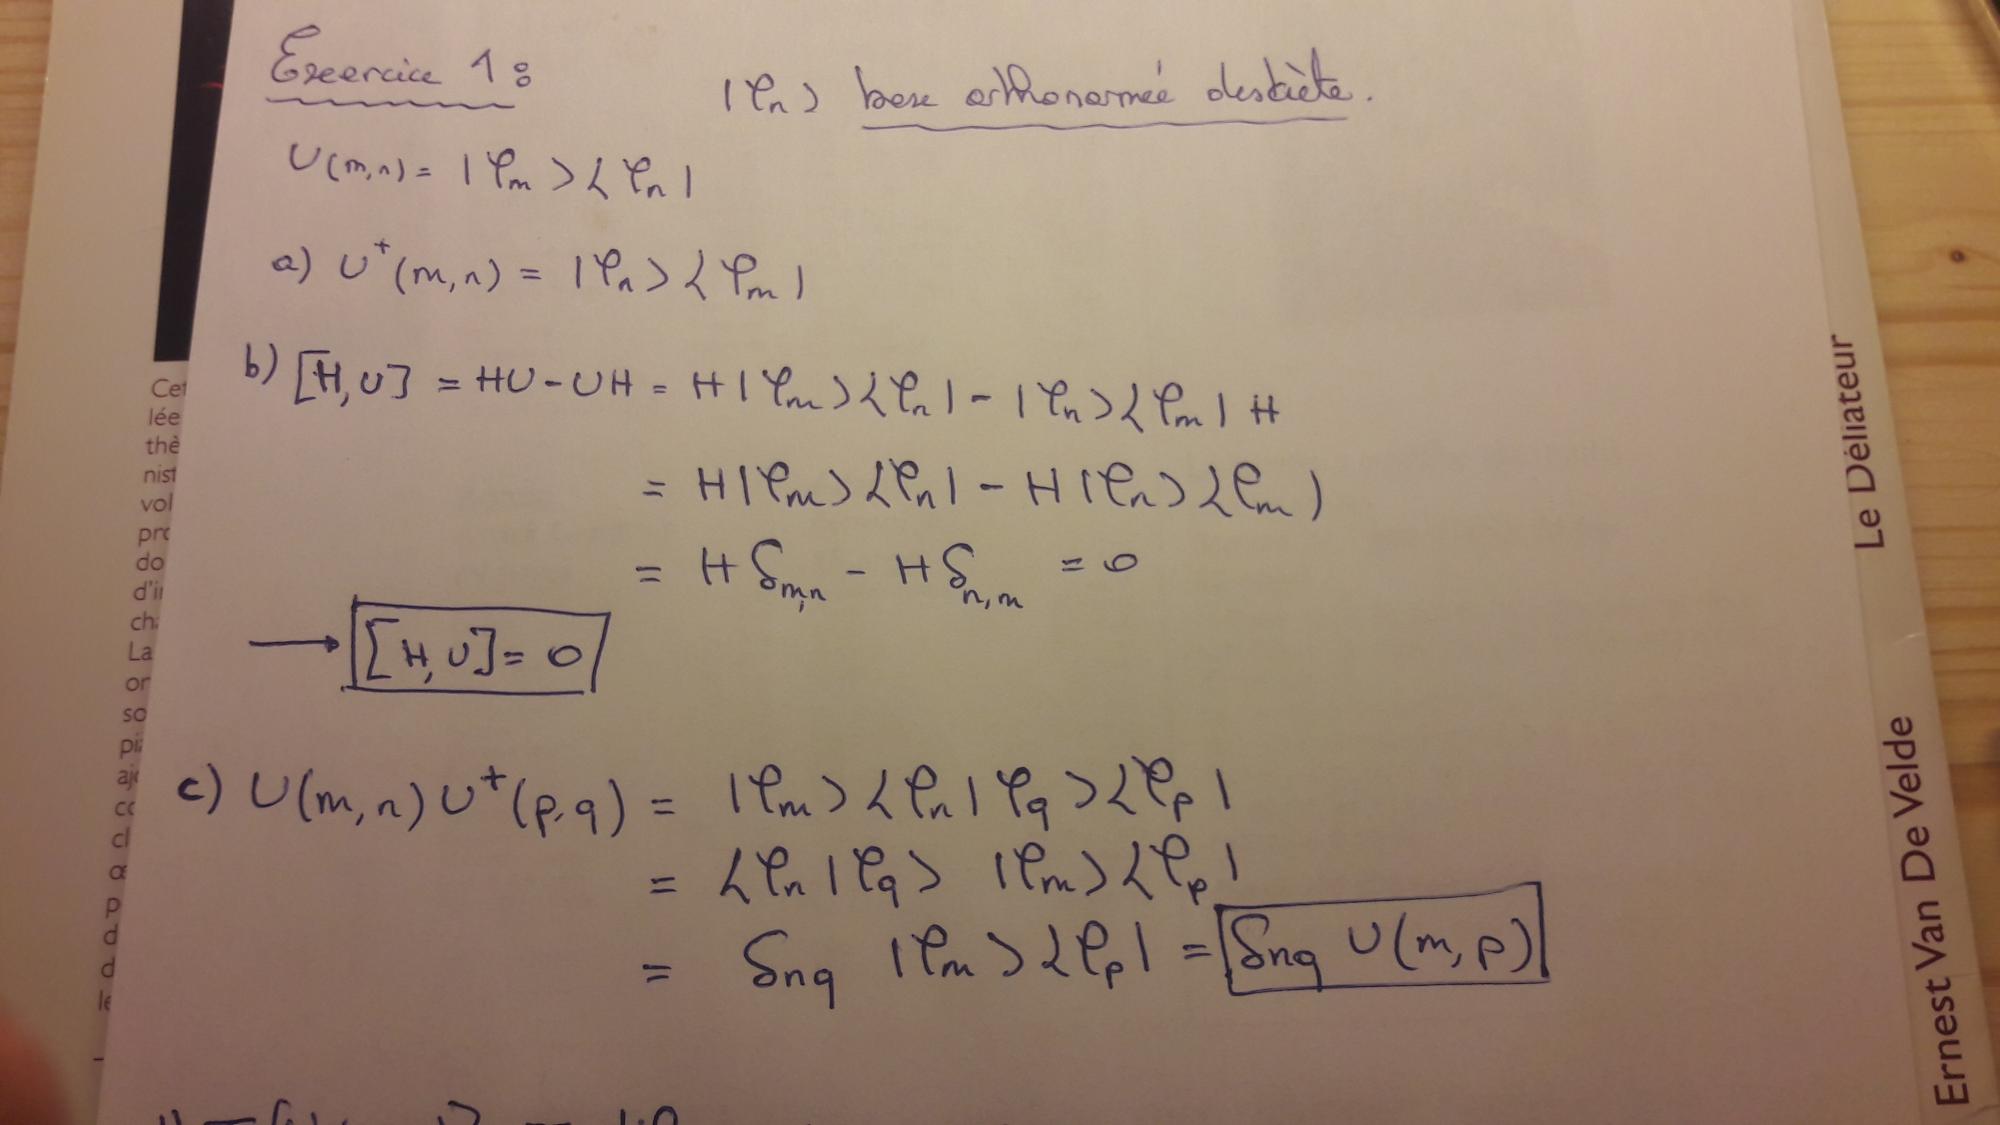 Exercice 1 :
|φn> base orthonormée discrète.
U(m,n) = |φm><φn|
a) U⁺(m,n) = |φn><φm|
b) [H,U] = HU-UH = H|φm><φn| - |φn><φm| H
= H|φm><φn| - H|φn><φm|
= H δm,n - H δn,m = 0
→ [H,U] = 0
c) U(m,n) U⁺(p,q) = |φm><φn|φq><φp|
= <φn|φq> |φm><φp|
= δnq |φm><φp| = δnq U(m,p)
Cet
lée
thè
nist
vol
pro
do
d'in
La
so
Le Déliateur
Ernest Van De Velde